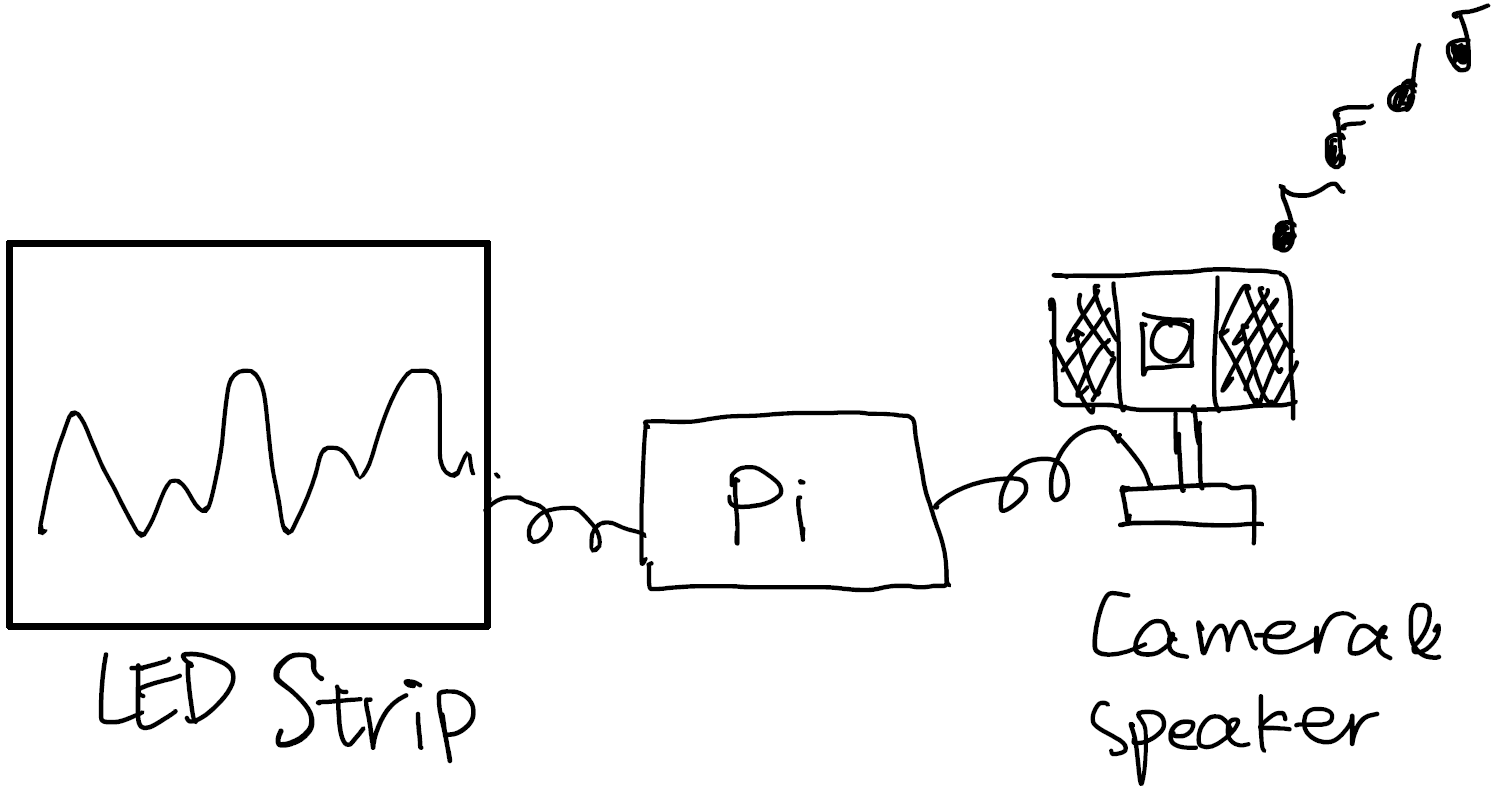 LED Strip
Pi
Camera &
Speaker